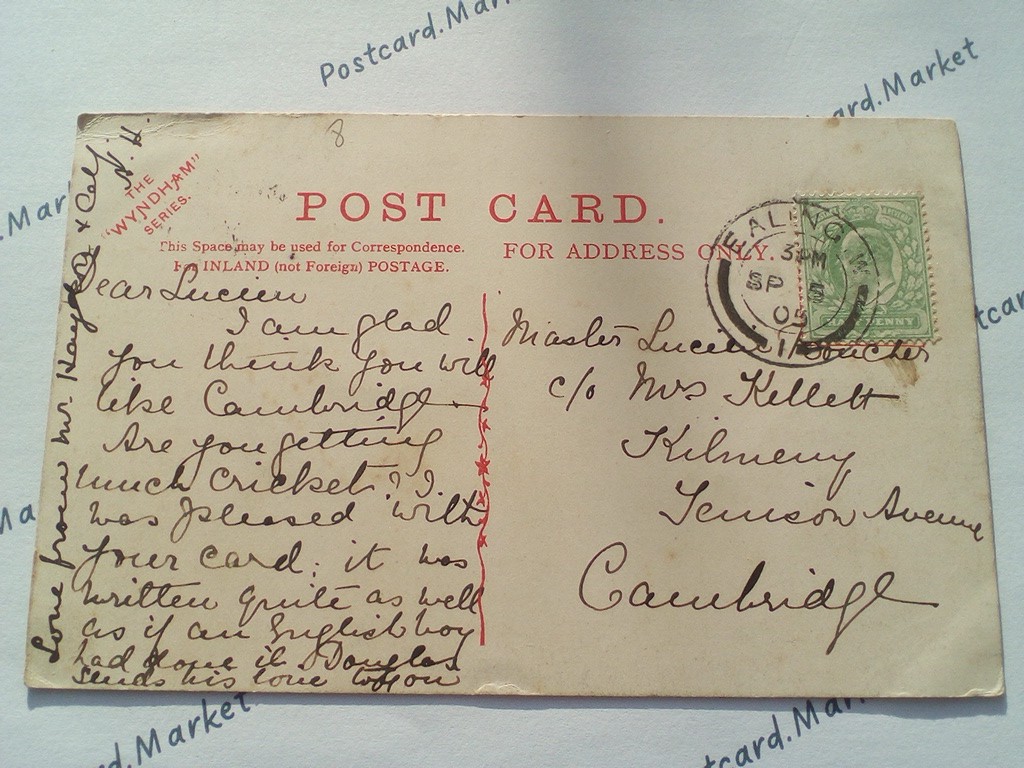 Postcard.Mar
ard.Market
8
THE
"WYNDHAM"
SERIES.
POST CARD.
This Space may be used for Correspondence.
For INLAND (not Foreign) POSTAGE.
FOR ADDRESS ONLY.
EALING W
3 PM
SP 5
05
PENNY
Dear Lucien
I am glad
you think you will
like Cambridge
Are you getting
much cricket? I
was pleased with
your card; it was
written quite as well
as if an English boy
had done it. Douglas
sends his love to you
Love from Mr.
N. H.
Master Lucien
c/o Mrs Kellett
Kilmeny
Tenison Avenue
Cambridge
.Mar
tcar
Ma
d.Market
tcard.Ma